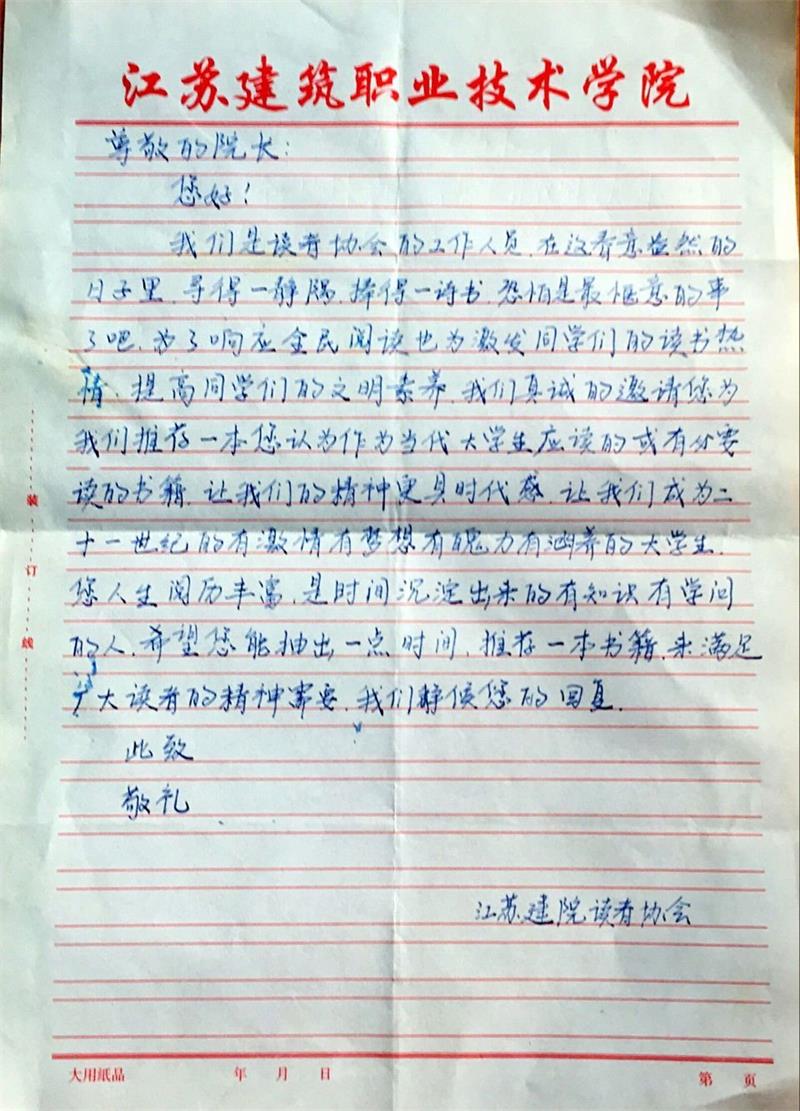 江苏建筑职业技术学院
尊敬的院长：
您好！
我们是读者协会的工作人员，在这春意盎然的
日子里，寻得一静隅，捧得一诗书，恐怕是最惬意的事
了吧，为了响应全民阅读也为激发同学们的读书热
情，提高同学们的文明素养，我们真诚的邀请您为
我们推荐一本您认为作为当代大学生应读的或有必要
读的书籍，让我们的精神更具时代感，让我们成为二
十一世纪的有激情有梦想有魄力有涵养的大学生.
您人生阅历丰富，是时间沉淀出来的有知识有学问
的人，希望您能抽出一点时间，推荐一本书籍，来满足
广大读者的精神需要，我们静候您的回复.
此致
敬礼
江苏建院读者协会
装
订
线
大用纸品 年 月 日 第 页